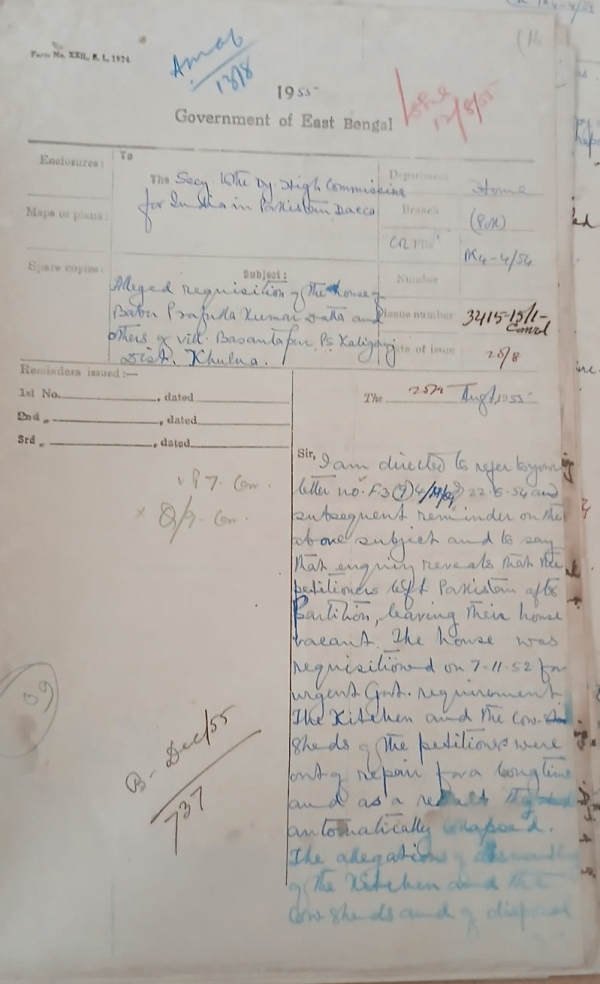 Form No. XXII, E. L. 1924
13/8
12/8/55
1955
Government of East Bengal
Enclosures:
To
The Secy to the Dy. High Commission
for India in Pakistan Dacca
Department
Home
Maps or plans:
Branch
(Poll)
File
Spare copies:
Subject:
Alleged requisition of the house of
Babu Prafulla Kumar Datta and
others of vill. Basantapur Ps Kaliganj
Dist. Khulna.
Number
Issue number
3415-15/1-
Date of issue
25/8
Reminders issued:—
1st No. , dated
2nd „ , dated
3rd „ , dated
The 25th Aug, 1955
Sir,
I am directed to refer to your
letter no. F.3 22-6-54 and
subsequent reminder on the
above subject and to say
that enquiry reveals that the
petitioners left Pakistan after
Partition, leaving their house
vacant. The house was
requisitioned on 7-11-52 for
urgent Govt. requirement
The Kitchen and the cow-
sheds of the petitioners were
out of repair for a long time
and as a result they
automatically collapsed.
The allegations of
of the Kitchen and the
cow sheds and of disposal
B- Dec/55
737